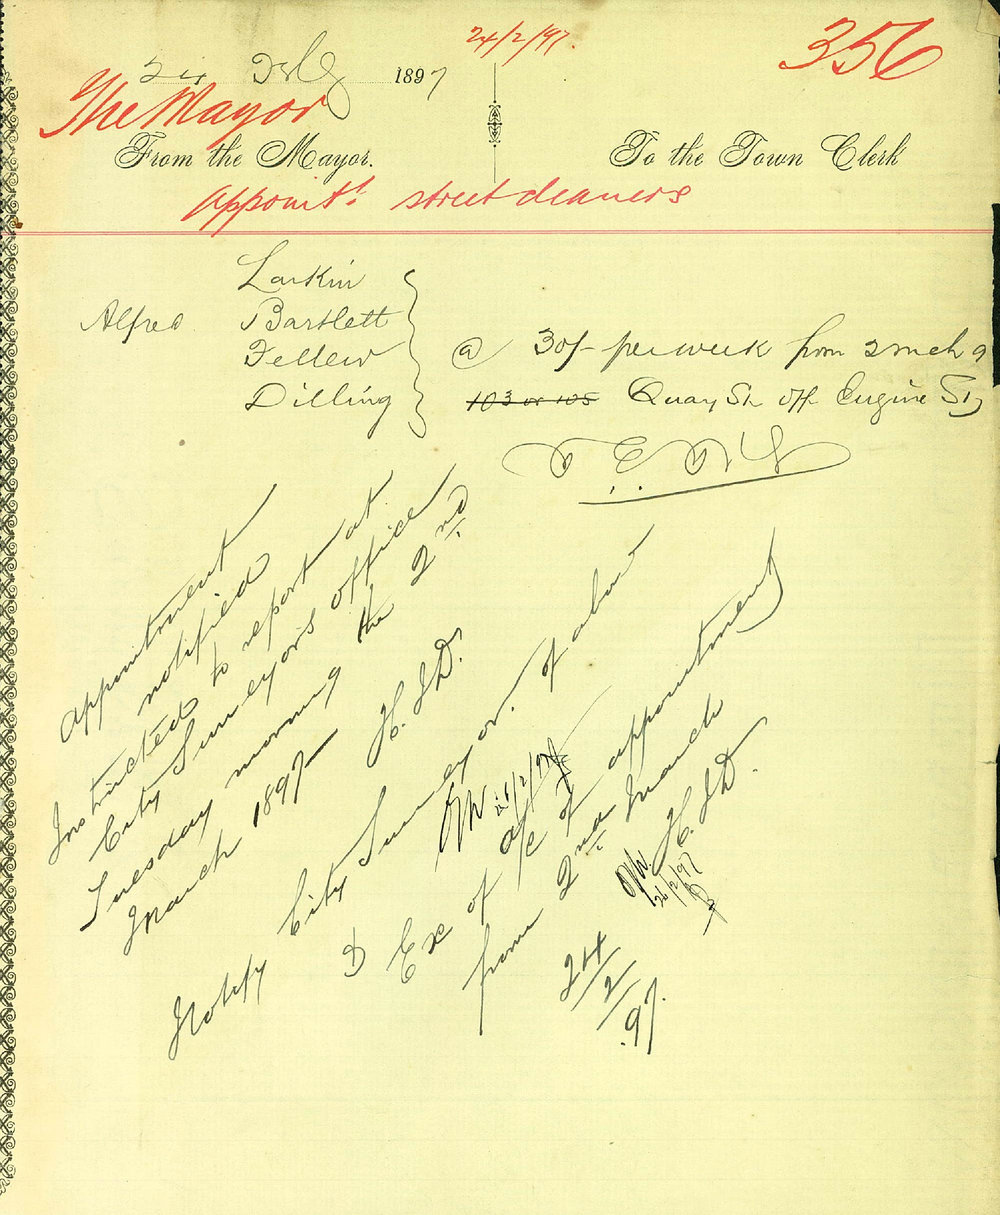 24/2/97.
356
24 Feby 1897
The Mayor
From the Mayor.
To the Town Clerk
Appointt. street cleaners
Larkin
Alfred Bartlett
Fellew
Dilling
@ 30/- per week from 2 Mch 9
103 or 105 Quay St off Engine St
Appointment
notified
Instructed to report at
City Surveyors Office
Tuesday morning the 2nd
March 1897
H.J.D.
Notify City Surveyor. of above
24/2/97
D Ex of a/c of appointment
from 2nd March
H.J.D.
26/2/97
24/2/.97.